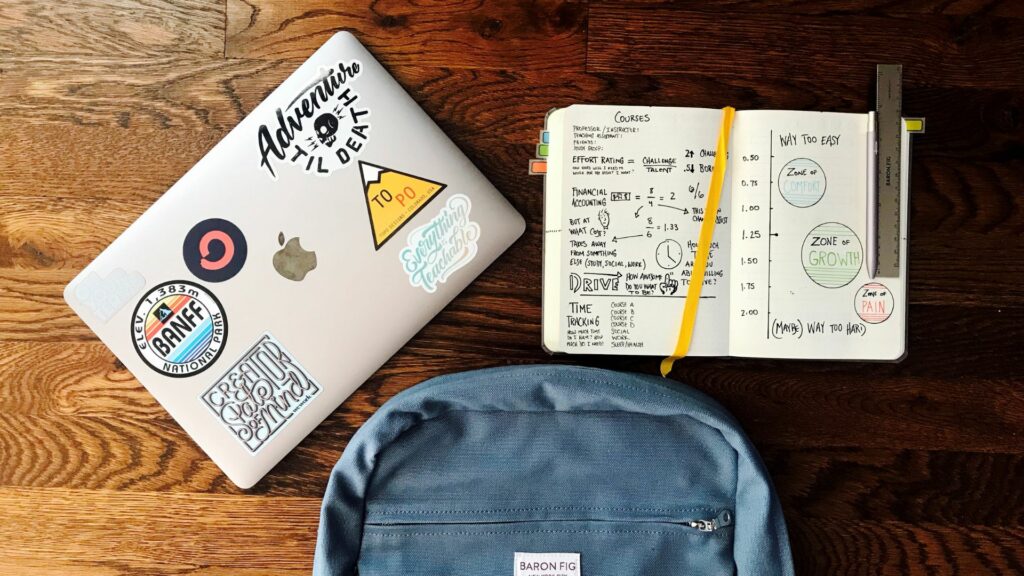 Adventure
'TIL DEATH
TO
PO
USA
ELEV. 1,383m
BANFF
NATIONAL PARK
Everything
is
Teachable
CREATOR
State
of
Mind
COURSES
PROFESSOR / INSTRUCTOR:
TEACHING ASSISTANT:
FRIENDS:
STUDY GROUP:
EFFORT RATING = CHALLENGE
TALENT
FINANCIAL
ACCOUNTING = 8 = 2
4
BUT AT 8 = 1.33
WHAT COST? 6
TAKES AWAY
FROM SOMETHING
ELSE (STUDY, SOCIAL, WORK)
DRIVE HOW AWESOME
DO YOU WANT
TO BE?
TIME
TRACKING
HOW MUCH TIME
DO I HAVE? HOW
MUCH DO I NEED?
COURSE A
COURSE B
COURSE C
COURSE D
SOCIAL
WORK
SLEEP/HEALTH
6/6
WAY TOO EASY
0.50
0.75
1.00
1.25
1.50
1.75
2.00
ZONE OF
COMFORT
ZONE OF
GROWTH
ZONE OF
PAIN
(MAYBE) WAY TOO HARD
BARON FIG
BARON FIG